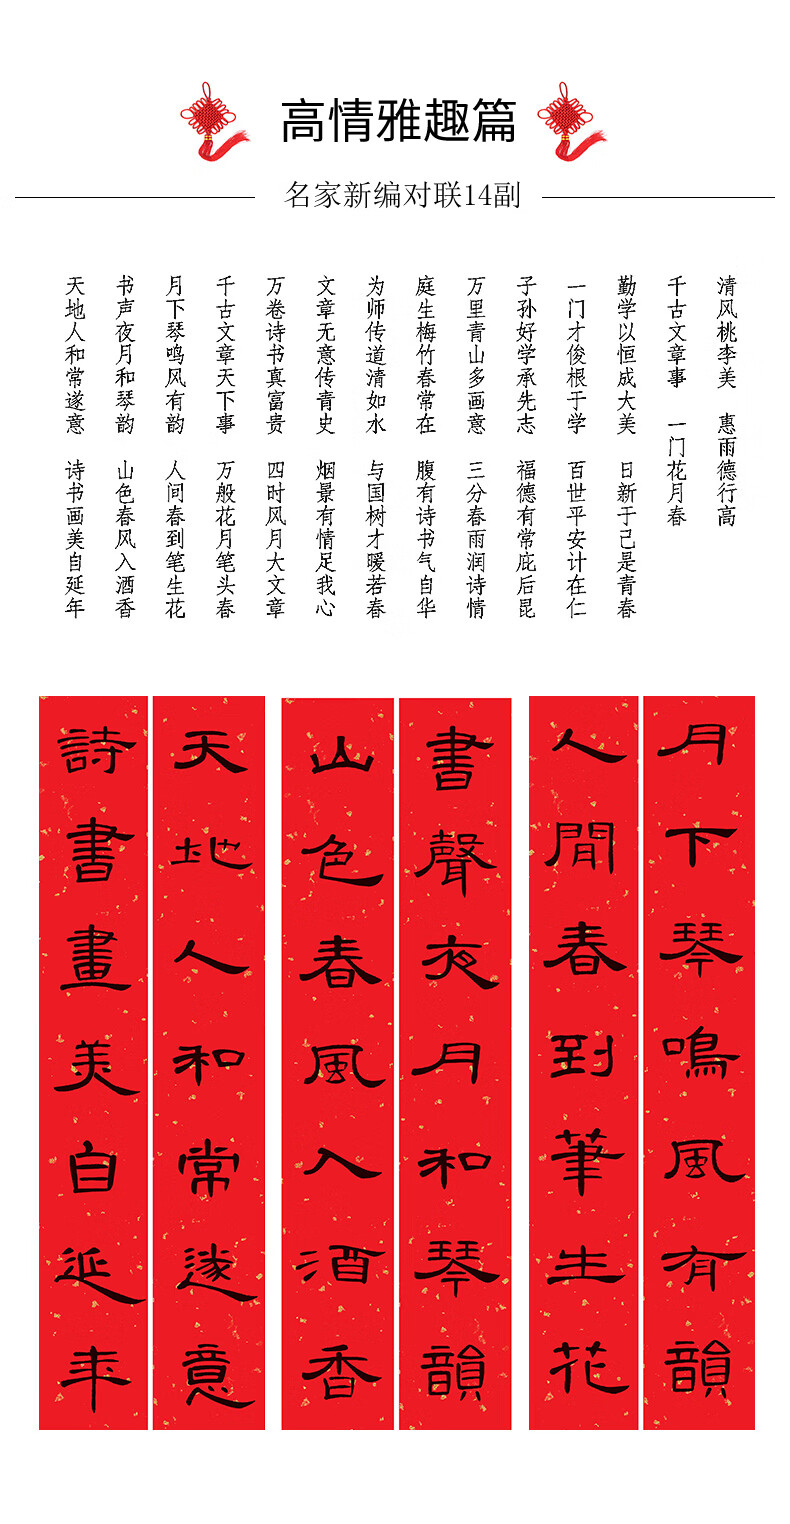 高情雅趣篇
名家新编对联14副
清风桃李美 惠雨德行高
千古文章事 一门花月春
勤学以恒成大美 日新于己是青春
一门才俊根于学 百世平安计在仁
子孙好学承先志 福德有常庇后昆
万里青山多画意 三分春雨润诗情
庭生梅竹春常在 腹有诗书气自华
为师传道清如水 与国树才暖若春
文章无意传青史 烟景有情足我心
万卷诗书真富贵 四时风月大文章
千古文章天下事 万般花月笔头春
月下琴鸣风有韵 人间春到笔生花
书声夜月和琴韵 山色春风入酒香
天地人和常遂意 诗书画美自延年
月下琴鳴風有韻
人間春到筆生花
書聲夜月和琴韻
山色春風入酒香
天地人和常遂意
詩書畫美自延年